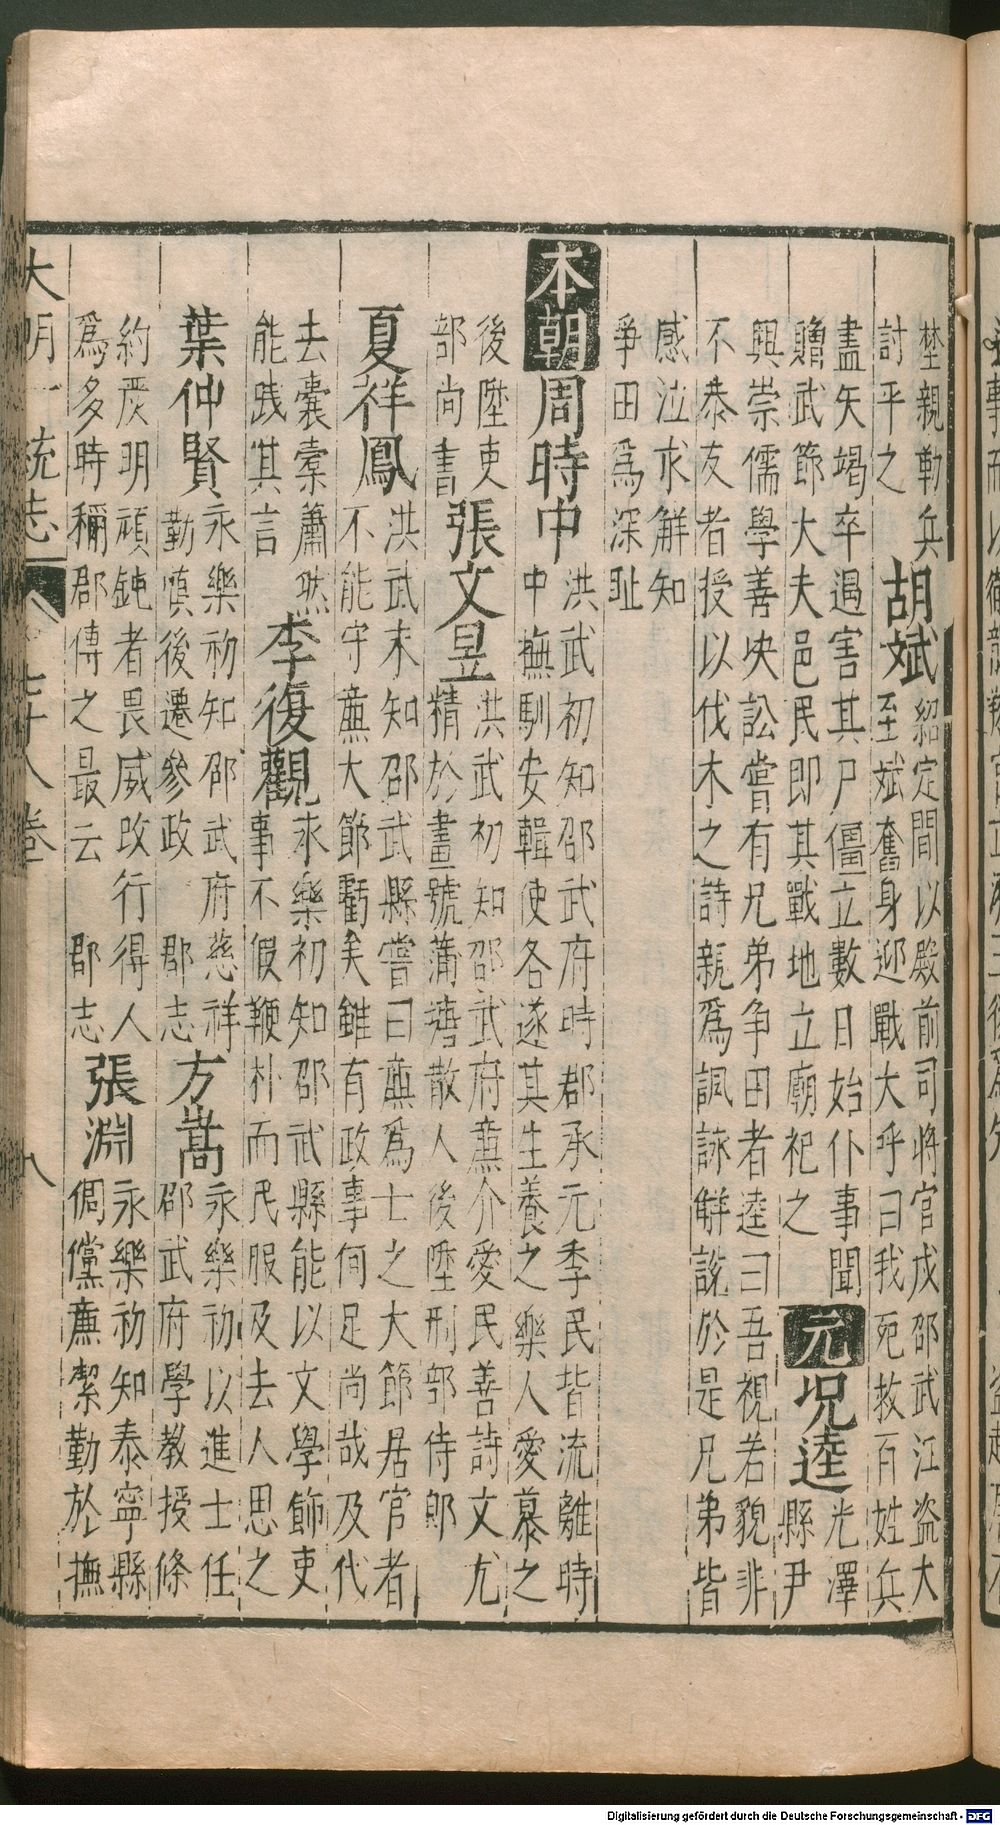 埜親勒兵
討平之
胡斌
紹定間以殿前司將官戍邵武江盗大
至斌奮身迎戰大呼曰我死救百姓兵
盡矢竭卒遇害其尸僵立數日始仆事聞
贈武節大夫邑民即其戰地立廟祀之
元
况逵
光澤
縣尹
興崇儒學善决訟嘗有兄弟争田者逵曰吾視若貌非
不恭友者授以伐木之詩親爲諷詠觧說於是兄弟皆
感泣求解知
爭田爲深耻
本朝
周時中
洪武初知邵武府時郡承元季民皆流離時
中撫馴安輯使各遂其生養之樂人愛慕之
後陞吏
部尚書
張文昱
洪武初知邵武府亷介愛民善詩文尤
精於畫號蒲塘散人後陞刑部侍郎
夏祥鳳
洪武末知邵武縣嘗曰亷爲士之大節居官者
不能守亷大節虧矣雖有政事何足尚哉及代
去囊槖蕭然
能踐其言
李復觀
永樂初知邵武縣能以文學飾吏
事不假鞭朴而民服及去人思之
葉仲賢
永樂初知邵武府慈祥
勤慎後遷參政 郡志
方嵩
永樂初以進士任
邵武府學教授條
約嚴明頑鈍者畏威改行得人
爲多時稱郡傳之最云 郡志
張淵
永樂初知泰寧縣
倜儻亷潔勤於撫
大明一統志 七十八卷 八
Digitalisierung gefördert durch die Deutsche Forschungsgemeinschaft - DFG